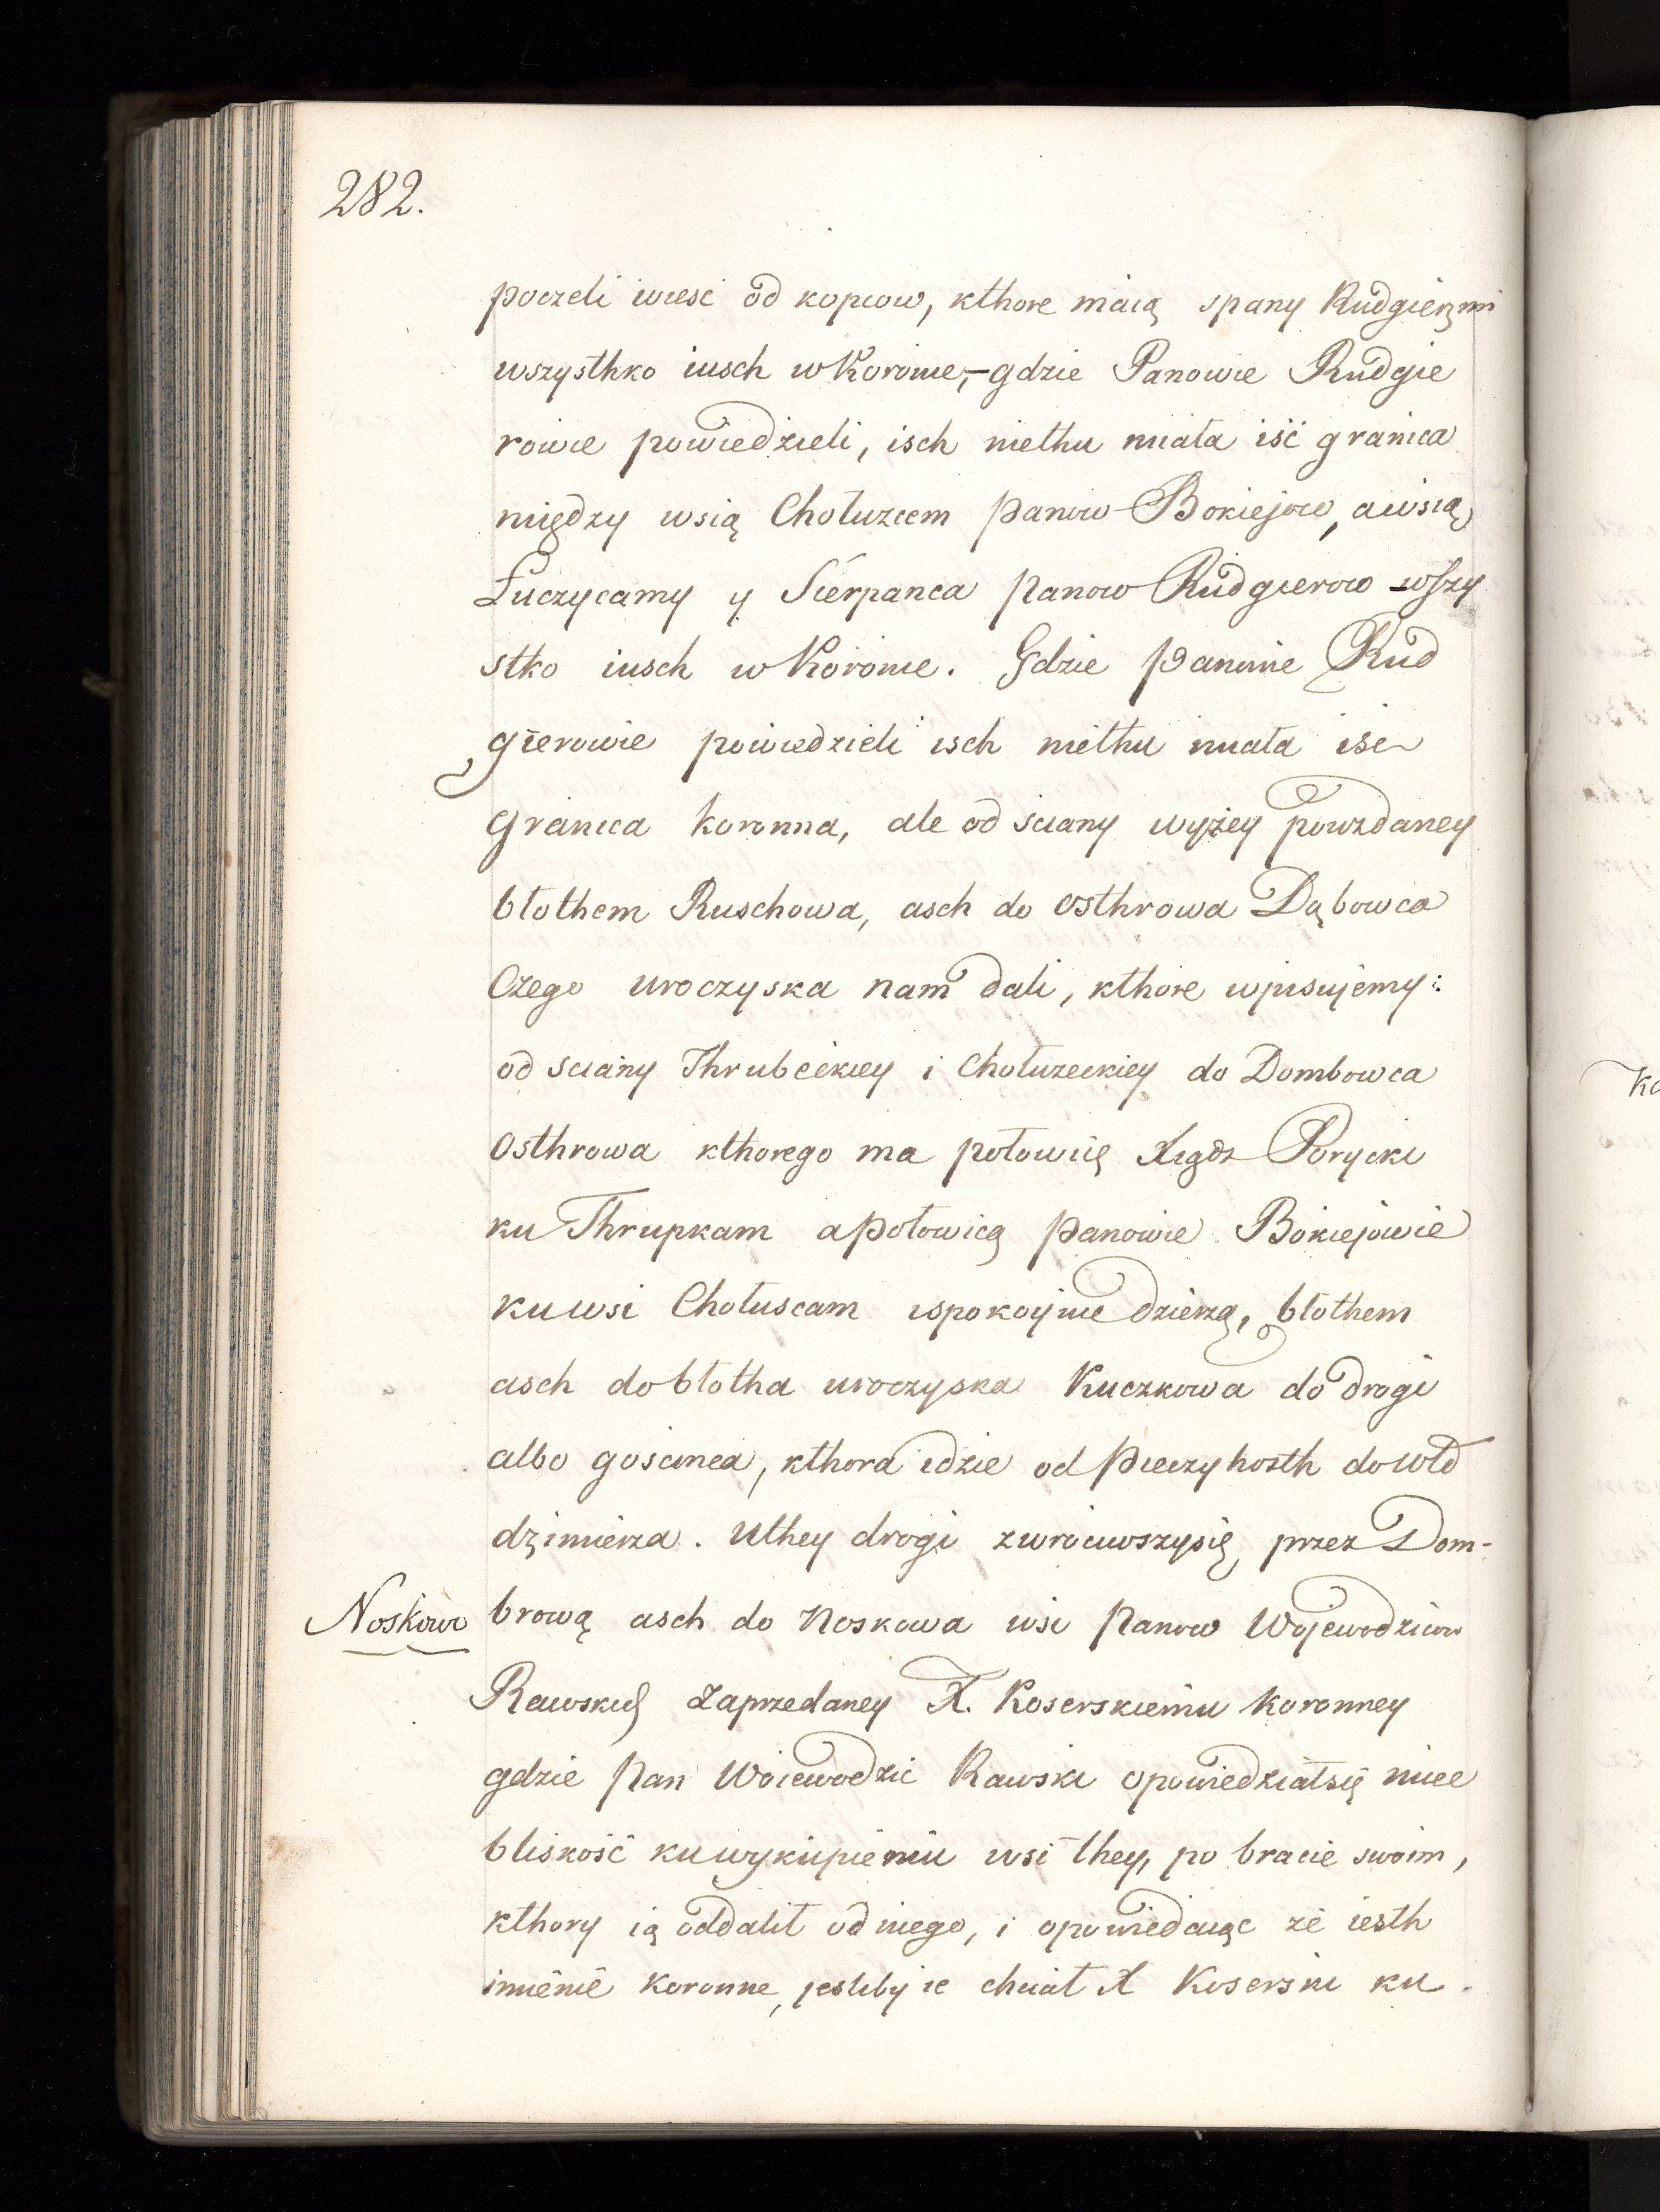 282.
poczeli wiesc od kopcow, kthore maią spany Rudgierzmi
wszysthko iusch w Koronie,- gdzie Panowie Rudgie
rowie powiedzieli, isch niethu miała iść granica
między wsią Chołuzcem panow Bokiejow, awsią
Łuczycamy y Sierpanca panow Rudgierow wszy
stko iusch w Koronie. Gdzie Panowie Rud
gierowie powiedzieli isch niethu miała isc
granica koronna, ale od sciany wyżey powzdaney
błothem Ruschowa, asch do osthrowa Dąbowca
Czego uroczyska nam dali, kthore wpisujemy:
od sciany Thrubeckiey i Chołuzeckiey do Dombowca
osthrowa kthorego ma połowicę Xiądz Porycki
ku Thrupkam a połowicę panowie Bokiejowie
ku wsi Chołuscam wspokoyne dzierzą, błothem
asch do błotha uroczyska Kuczkowa do drogi
albo goscinca, kthora idzie od Pieczyhosth do Wło
dzimierza. Uthey drogi zwrociwszysię przez Dom-
Noskow
brową asch do Noskowa wsi Panow Wojewodzicow
Rawskich zaprzedaney X. Koserskiemu koronney
gdzie Pan Woiewodzic Rawski opowiedziałsię miec
bliskość ku wykupieniu wsi they, po bracie swoim,
kthory ią oddalił od niego, i opowiedaiąc ze iesth
imienie koronne, jesliby ie chciał X Koserski ku